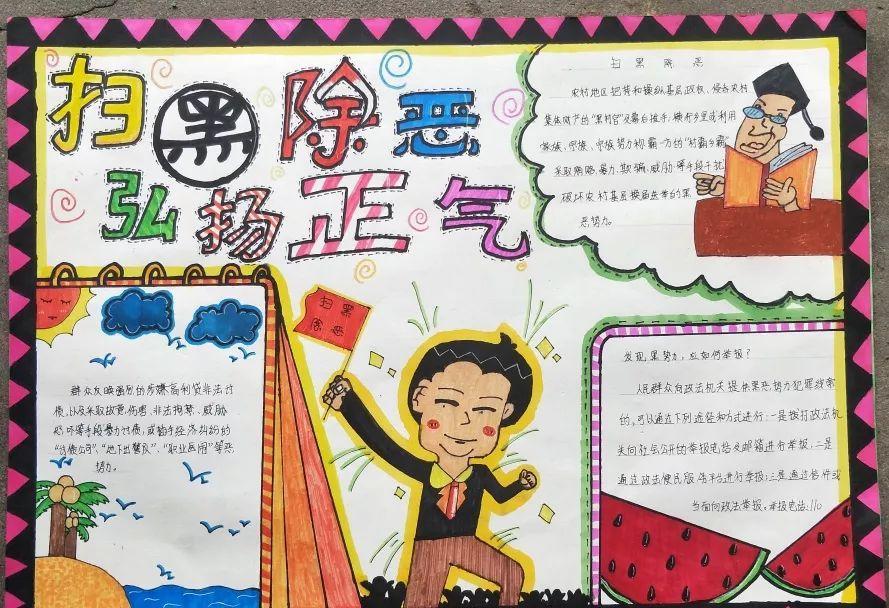 扫黑除恶
弘扬正气
扫黑除恶
农村地区把持和操纵基层政权、侵吞农村
集体财产的“黑村官”及幕后推手，横行乡里或利用
家族、宗族、宗族势力称霸一方的“村霸乡霸”
采取贿赂、暴力、欺骗、威胁等手段干扰
破坏农村基层换届选举的黑
恶势力。
扫黑
除恶
群众反映强烈的涉嫌高利贷非法讨
债，以及采取故意伤害、非法拘禁、威胁
恐吓等手段暴力讨债，或插手经济纠纷的
“讨债公司”、“地下出警队”、“职业医闹”等恶
势力。
发现黑势力，应如何举报？
人民群众向政法机关提供黑恶势力犯罪线索
的，可以通过下列途径和方式进行：一是拨打政法机
关向社会公开的举报电话及邮箱进行举报；二是
通过政法便民服务平台进行举报；三是通过信件或
当面向政法举报。举报电话：110